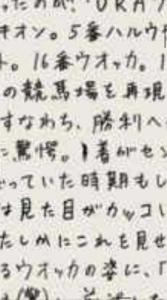 ったのか?「URA
キオン。5番ハルウ
ト。16番ウオッカ。1
の競馬場を再現
すなわち、勝利へ
に驚愕。1着がセン
っていた時期もし
は見た目がカッコい
たしかにこれを見せ
るウオッカの姿に、「